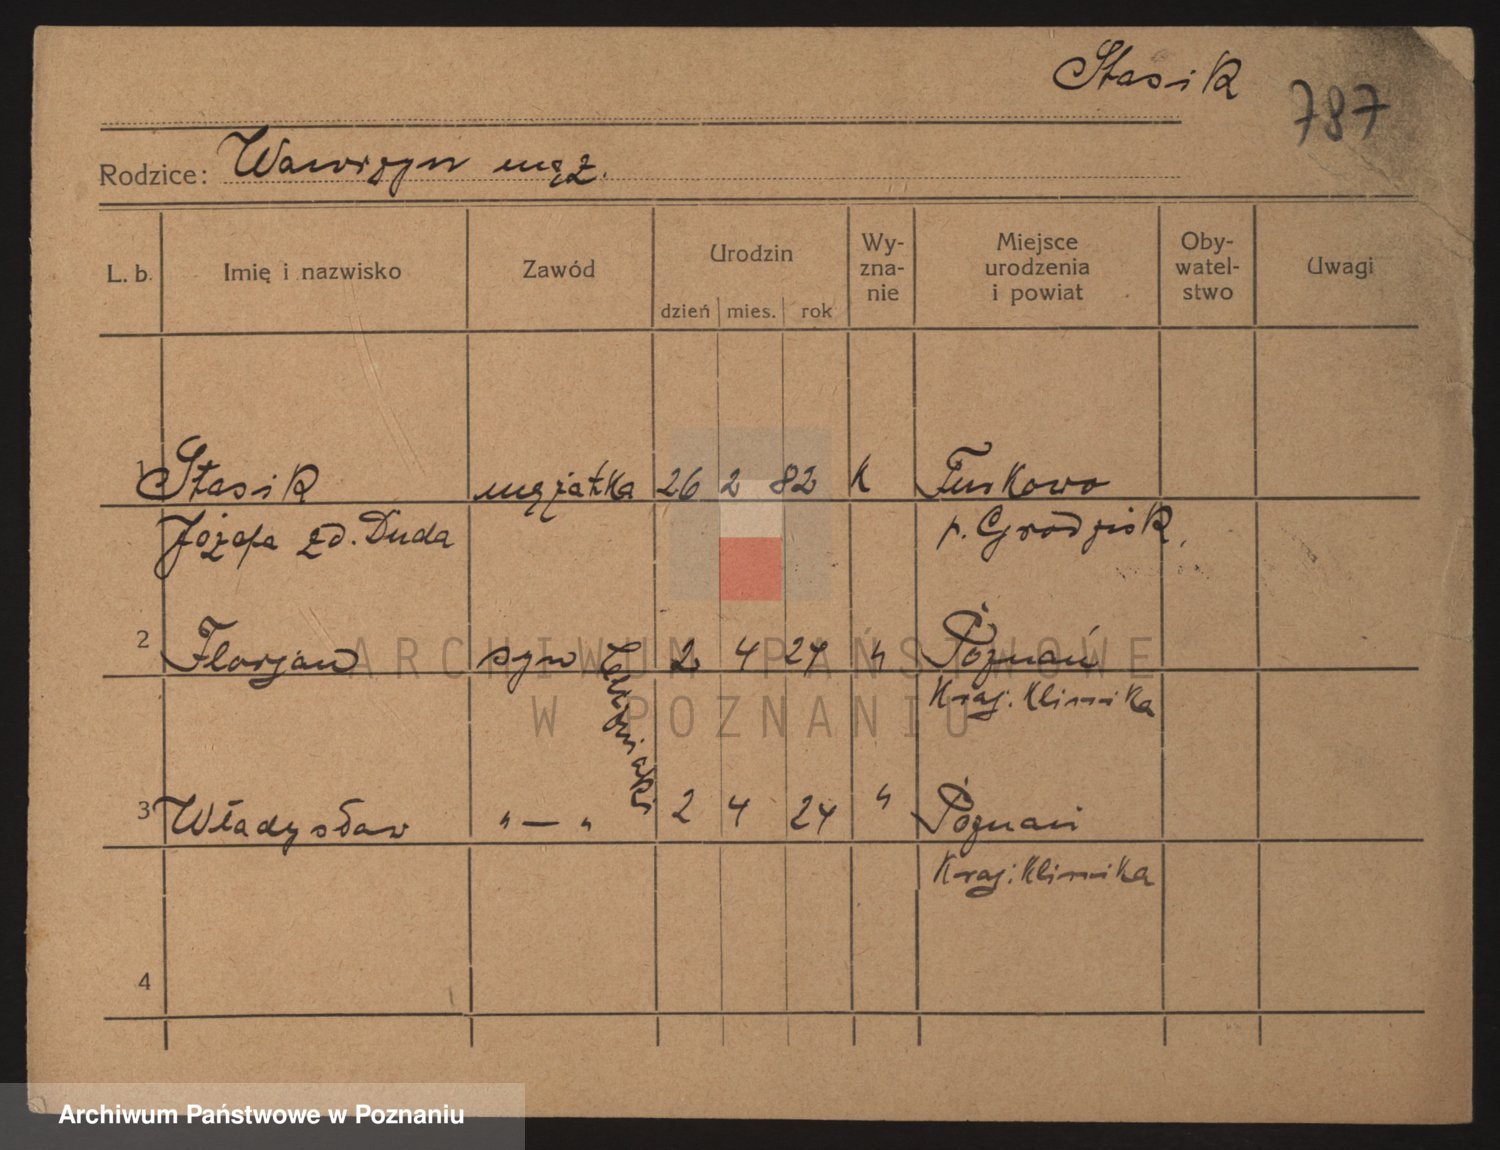 Stasik
787
Rodzice: Wawrzyn mąż.
L. b. Imię i nazwisko Zawód Urodzin Wy-zna-nie Miejsce urodzenia i powiat Oby-watel-stwo Uwagi
dzień mies. rok
1 Stasik mężatka 26 2 82 k Turkowo
Józefa zd. Duda p. Grodzisk,
2 Florjan syn 2 4 24 " Poznań
bliźniaki
Kraj. Klinika
3 Władysław " — " 2 4 24 " Poznań
Kraj. Klinika
4
ARCHIWUM PAŃSTWOWE
W POZNANIU
Archiwum Państwowe w Poznaniu